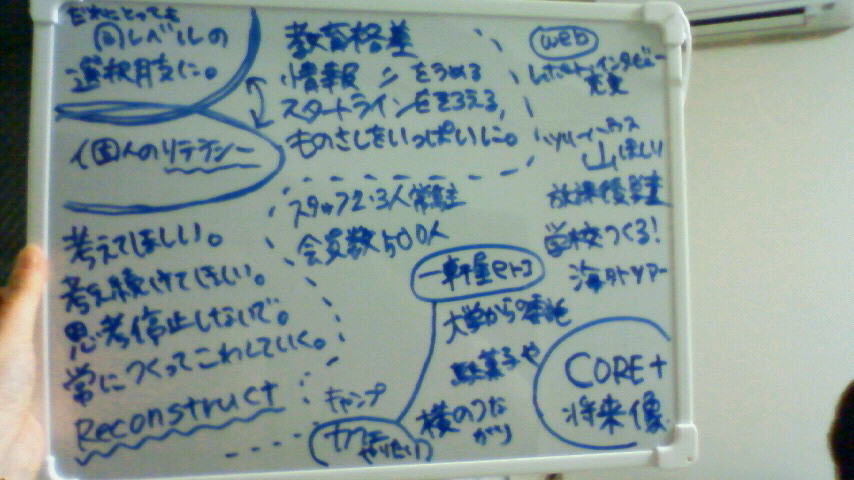 だれにとっても
同レベルの
選択肢に。
個人のリテラシー
教育格差
情報 〃 をうめる
スタートラインをそろえる、
ものさしをいっぱいに。
web
レポート、インタビュー
充実
ツリーハウス
山ほしい
放課後教室
学校つくる!
海外ツアー
スタッフ2・3人常駐
会員数500人
考えてほしい。
考え続けてほしい。
思考停止しないで。
常につくってこわしていく。
Reconstruct
一軒屋
大学から委託
駄菓子や
横のつな
がり
キャンプ
やりたい
CORE+
将来像